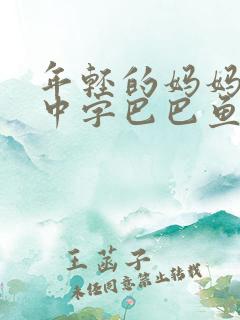 年轻的妈妈
中字巴巴鱼
王菡子
未经同意禁止转载